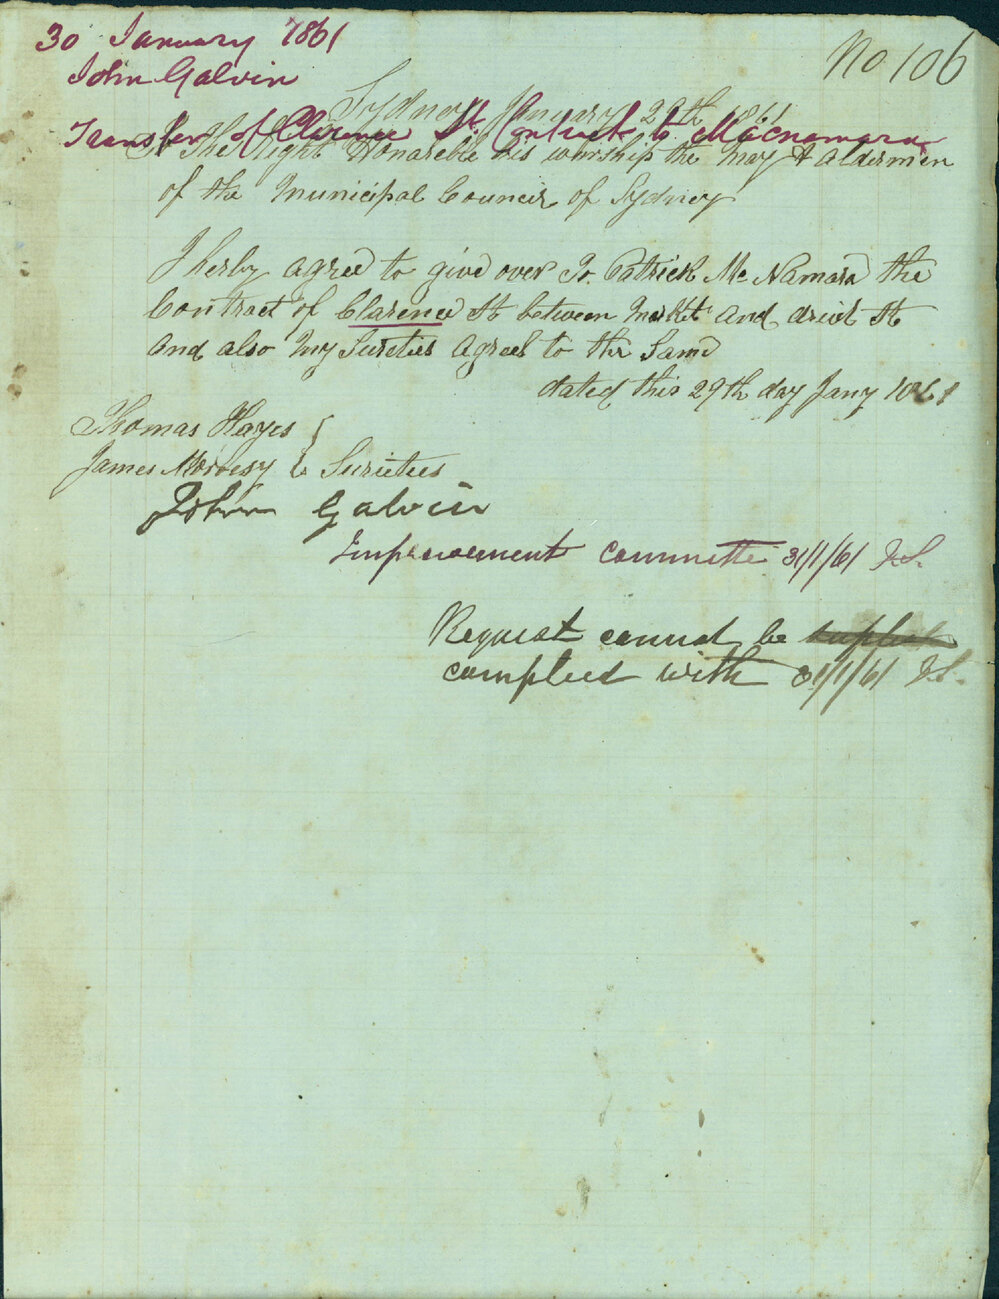 30 January 1861
No 106
John Galvin
Sydney January 29th 1861
Transfer of Clarence St Contract to Macnamara
To The Right Honareble his worship the May & aldermen
of the Municipal Council of Sydney
I herby agree to give over To Patrick Mc Namara the
Contract of Clarence St between Markt and druit St
and also my Sureties agrees to the Same
dated this 29th day Jany 1861
Thomas Hayes
James Sureties
John Galvin
Improvement Committee 31/1/61 J.S.
Request cannot be
complied with 31/1/61 J.S.